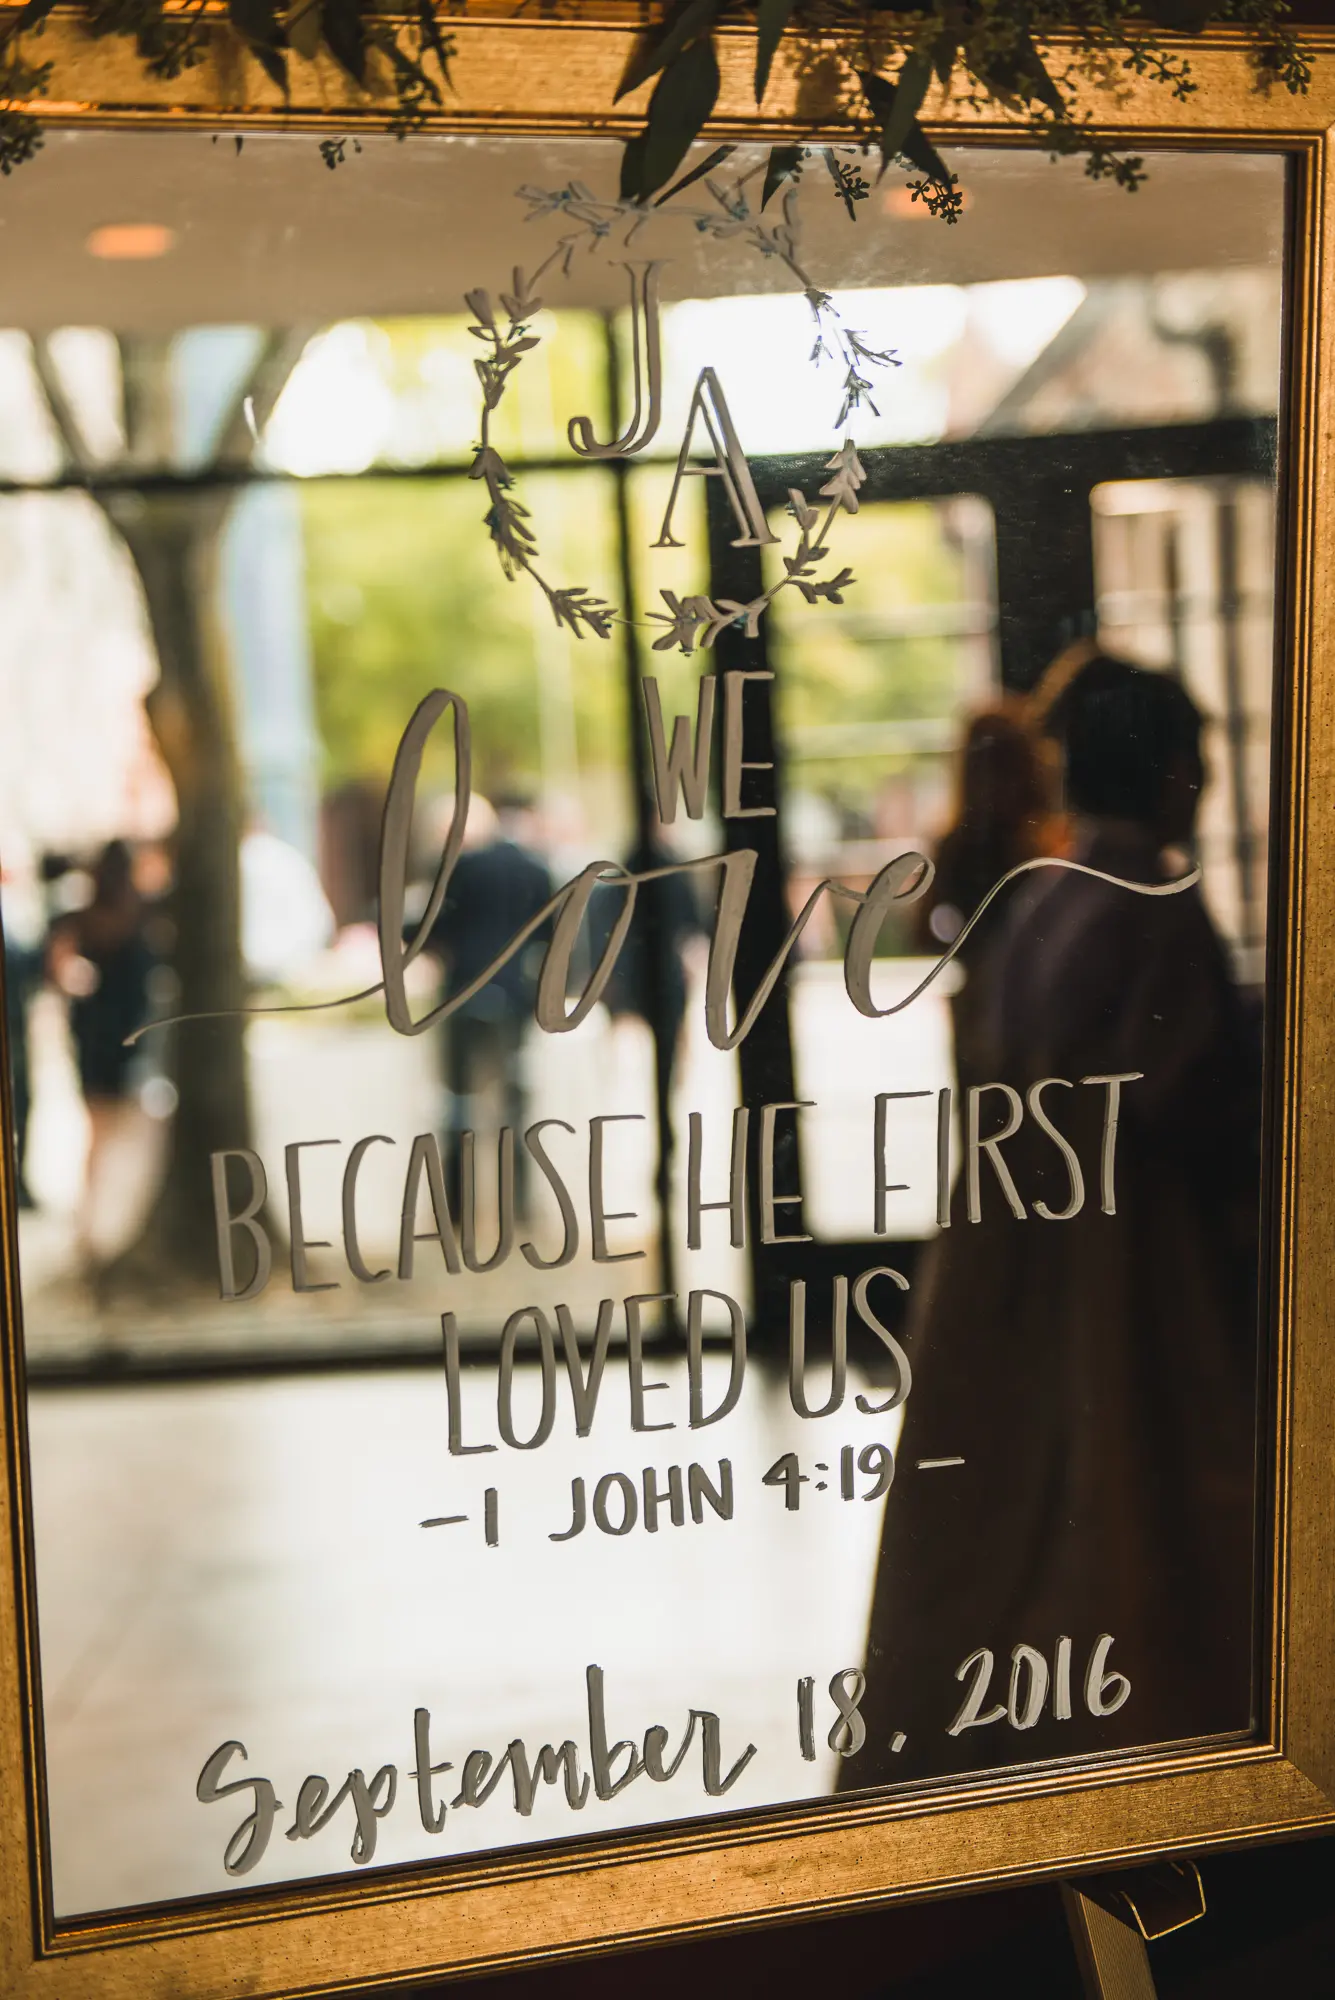 J
A
WE
love
BECAUSE HE FIRST
LOVED US
-1 JOHN 4:19-
September 18. 2016